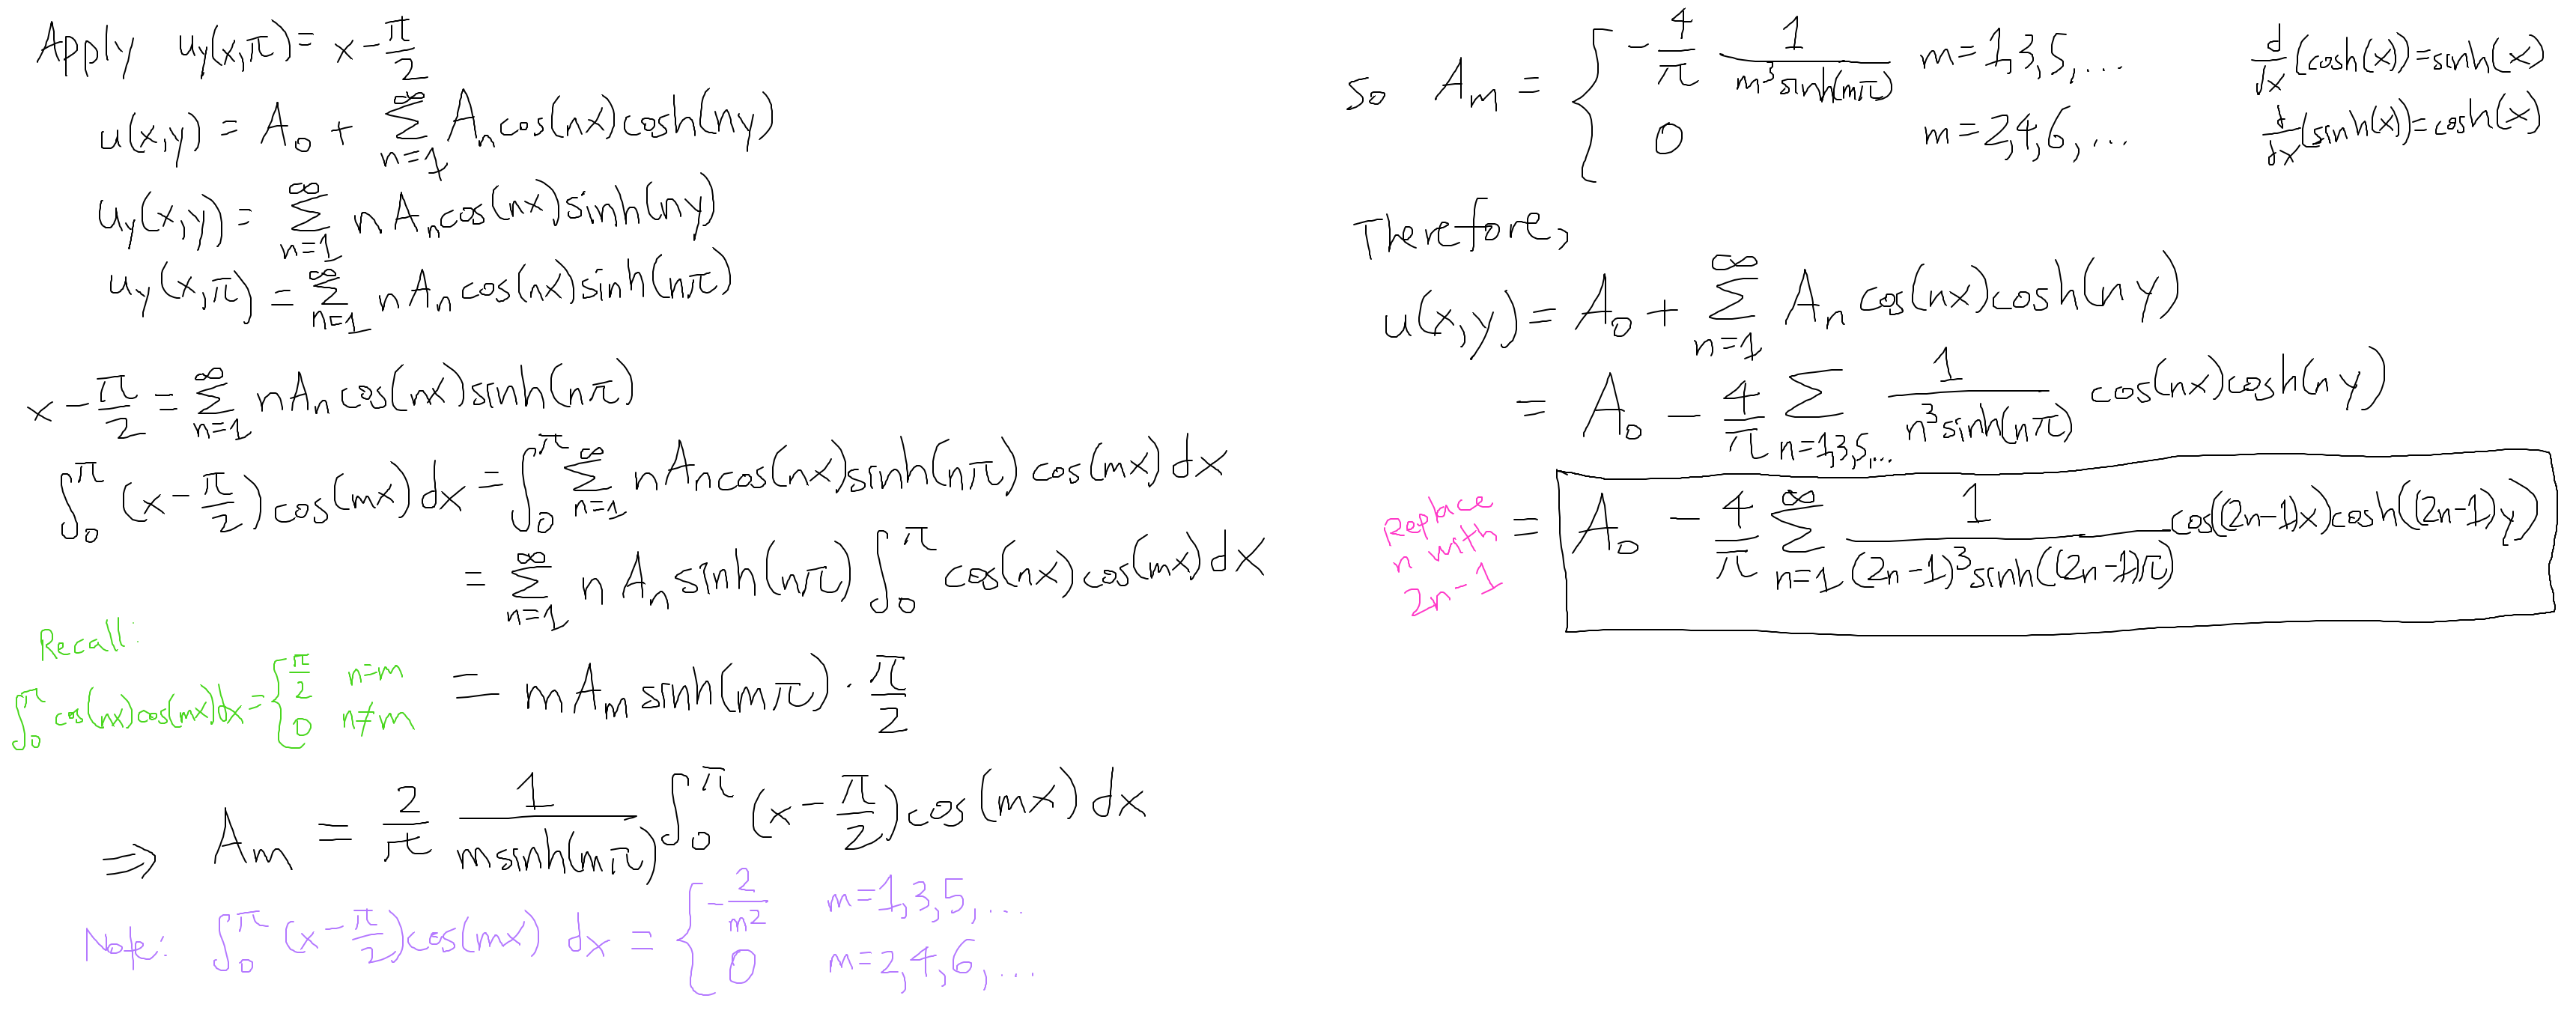 Apply u_y(x,π) = x - π/2
u(x,y) = A_0 + ∑_{n=1}^{∞} A_n cos(nx)cosh(ny)
u_y(x,y) = ∑_{n=1}^{∞} n A_n cos(nx)sinh(ny)
u_y(x,π) = ∑_{n=1}^{∞} n A_n cos(nx)sinh(nπ)
x - π/2 = ∑_{n=1}^{∞} n A_n cos(nx)sinh(nπ)
∫_0^π (x - π/2)cos(mx)dx = ∫_0^π ∑_{n=1}^{∞} n A_n cos(nx)sinh(nπ) cos(mx)dx
= ∑_{n=1}^{∞} n A_n sinh(nπ) ∫_0^π cos(nx)cos(mx)dx
Recall:
∫_0^π cos(nx)cos(mx)dx = { π/2 n=m
0 n≠m
= m A_m sinh(mπ) · π/2
⇒ A_m = 2/π 1/(m sinh(mπ)) ∫_0^π (x - π/2)cos(mx)dx
Note: ∫_0^π (x - π/2)cos(mx) dx = { -2/m^2 m=1,3,5,...
0 m=2,4,6,...
So A_m = { -4/π 1/(m^3 sinh(mπ)) m=1,3,5,...
0 m=2,4,6,...
d/dx (cosh(x)) = sinh(x)
d/dx (sinh(x)) = cosh(x)
Therefore,
u(x,y) = A_0 + ∑_{n=1}^{∞} A_n cos(nx)cosh(ny)
= A_0 - 4/π ∑_{n=1,3,5,...} 1/(n^3 sinh(nπ)) cos(nx)cosh(ny)
Replace
n with
2n-1
= A_0 - 4/π ∑_{n=1}^{∞} 1/((2n-1)^3 sinh((2n-1)π)) cos((2n-1)x)cosh((2n-1)y)